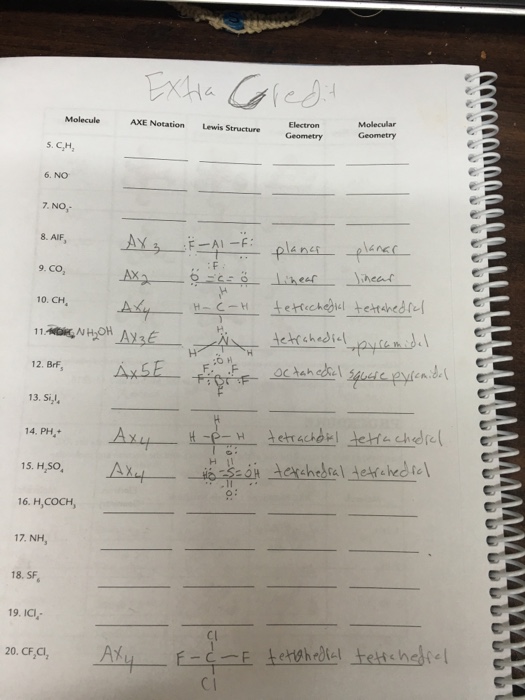 Extra Credit
Molecule AXE Notation Lewis Structure Electron Geometry Molecular Geometry
5. C₂H₂
6. NO
7. NO₂-
8. AlF₃ AX₃ :F-Al-F: :F: planar planar
9. CO₂ AX₂ O=C=O linear linear
10. CH₄ AX₄ H H-C-H tetrahedral tetrahedral
11. NH₂OH AX₃E H N H tetrahedral pyramidal
12. BrF₅ AX5E :OH F F F:Br:F F octahedral square pyramidal
13. Si₂I₆
14. PH₄+ AX₄ H H-P-H H tetrahedral tetrahedral
15. H₂SO₄ AX₄ O: HO-S-OH O: tetrahedral tetrahedral
16. H₃COCH₃
17. NH₃
18. SF₆
19. ICl₄-
20. CF₂Cl₂ AX₄ Cl F-C-F Cl tetrahedral tetrahedral